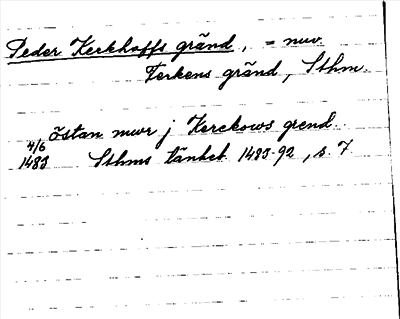 Peder Kerkhoffs gränd, = nuv.
Ferkens gränd, Sthm.
östan mwr j Kerckows grend.
4/6
1483 Sthms tänkeb. 1483-92, s. 7